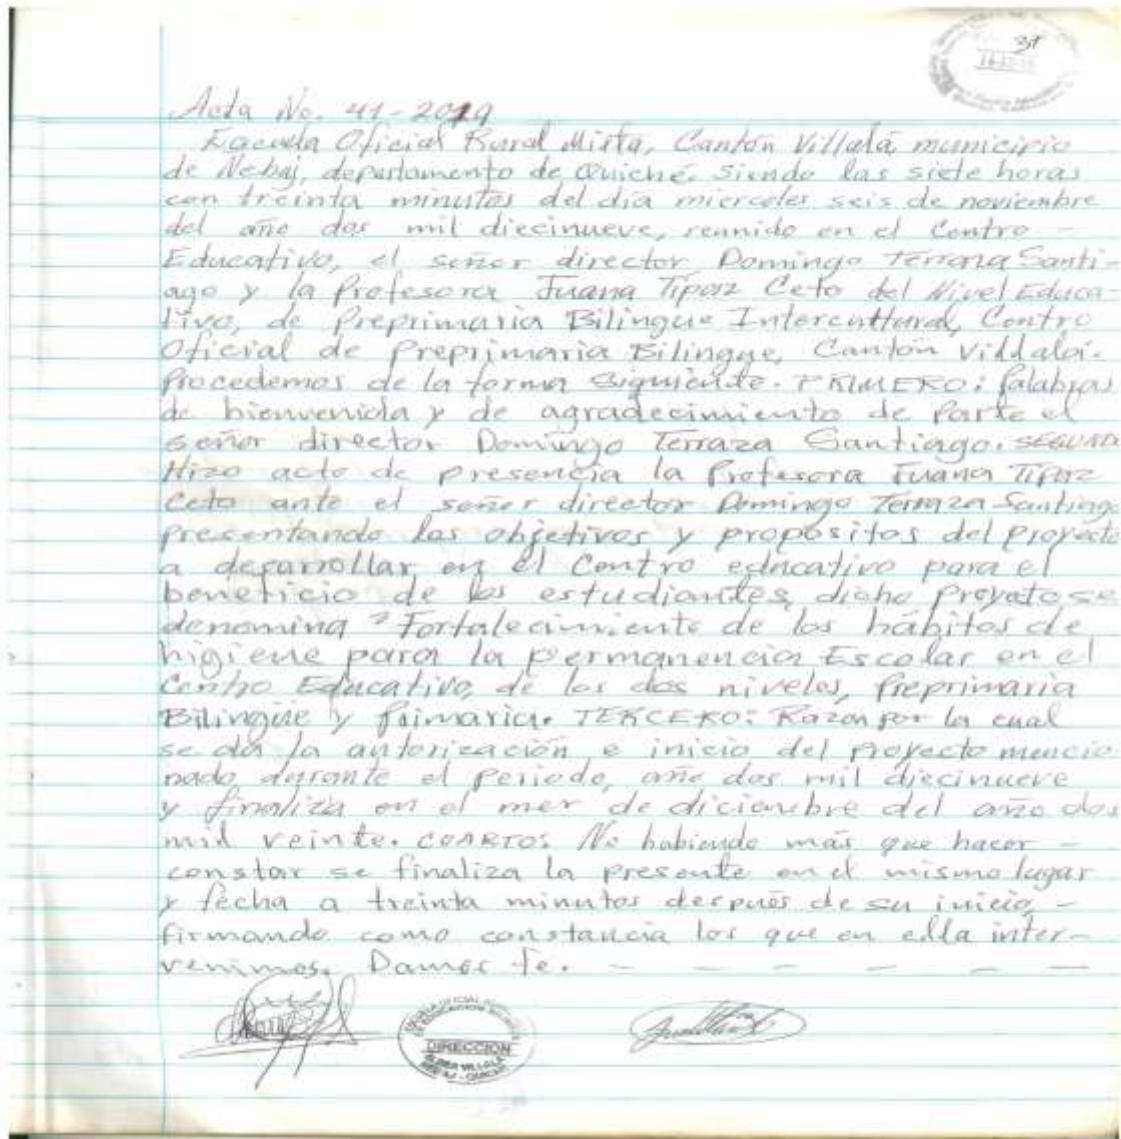 37
Acta No. 41-2019
Escuela Oficial Rural Mixta, Cantón Villalá, municipio
de Nebaj, departamento de Quiché. Siendo las siete horas
con treinta minutos del día miercoles seis de noviembre
del año dos mil diecinueve, reunido en el Centro -
Educativo, el señor director Domingo Terraza Santi-
ago y la Profesora Juana Tipaz Ceto del Nivel Educa-
tivo, de Preprimaria Bilingue Intercultural, Centro
Oficial de Preprimaria Bilingue, Cantón Villalá.
Procedemos de la forma siguiente. PRIMERO: Palabras
de bienvenida y de agradecimiento de Parte el
señor director Domingo Terraza Santiago. SEGUNDO
Hizo acto de presencia la Profesora Juana Tipaz
Ceto ante el señor director Domingo Terraza Santiago
presentando los objetivos y propositos del proyecto
a desarrollar en el Centro educativo para el
beneficio de los estudiantes, dicho proyato se
denomina "Fortalecimiento de los hábitos de
higiene para la permanencia Escolar en el
Centro Educativo, de los dos niveles, Preprimaria
Bilingüe y Primaria. TERCERO: Razon por la cual
se da la autorización e inicio del proyecto mencio
nado durante el periodo, año dos mil diecinueve
y finaliza en el mes de diciembre del año dos
mil veinte. CUARTO: No habiendo más que hacer -
constar se finaliza la presente en el mismo lugar
y fecha a treinta minutos después de su inicio, -
firmando como constancia los que en ella inter-
venimos. Damos fe. - - - - - -
DIRECCION